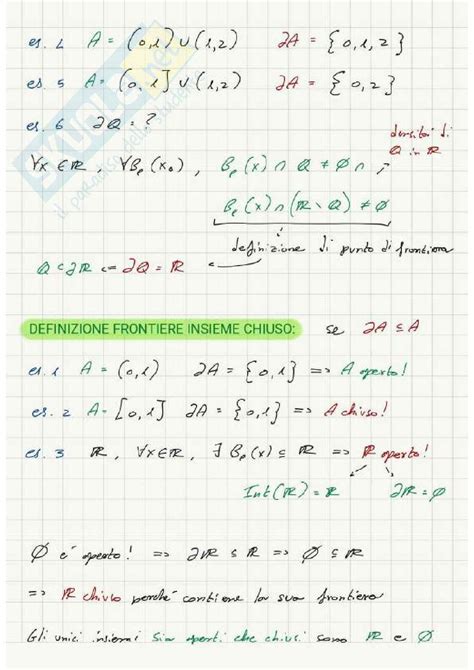 es. 4 A = (0,1) ∪ (1,2) ∂A = {0,1,2}
es. 5 A = (0,1] ∪ (1,2) ∂A = {0,2}
es. 6 ∂Q = ?
densità di
Q in ℝ
∀x ∈ ℝ, ∀Bρ(x₀), Bρ(x) ∩ Q ≠ ∅ ∧,
Bρ(x) ∩ (ℝ \ Q) ≠ ∅
definizione di punto di frontiera
Q ⊂ ∂ℝ ⇐ ∂Q = ℝ
DEFINIZIONE FRONTIERE INSIEME CHIUSO: se ∂A ⊆ A
es. 1 A = (0,1) ∂A = {0,1} => A aperto!
es. 2 A = [0,1] ∂A = {0,1} => A chiuso!
es. 3 ℝ, ∀x∈ℝ, ∃ Bρ(x) ⊆ ℝ => ℝ aperto!
Int(ℝ) = ℝ ∂ℝ = ∅
∅ è aperto! => ∂ℝ ⊆ ℝ => ∅ ⊆ ℝ
=> ℝ chiuso perché contiene la sua frontiera
Gli unici insiemi sia aperti che chiusi sono ℝ e ∅
SKUOLA.net